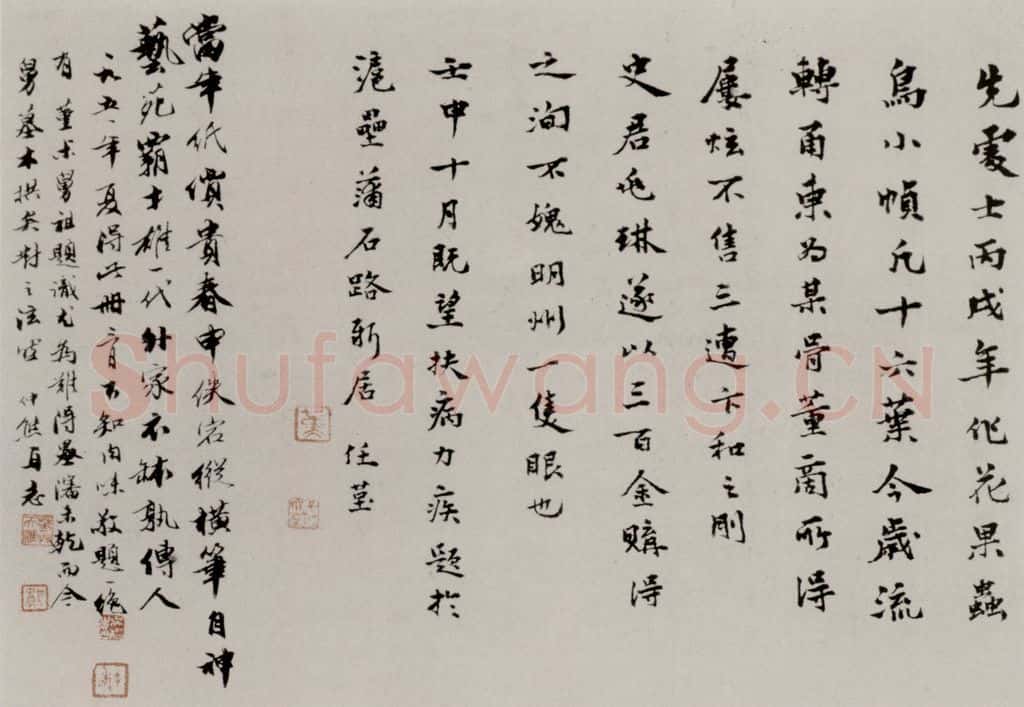 先處士丙戌年作花果蟲
鳥小幀凡十六葉今歲流
轉甬東为某骨董商所得
屢炫不售三遭卞和之刖
史君兆琳遂以三百金購得
之洵不媿明州一隻眼也
壬申十月既望扶病力疾題於
滬壘蒲石路新居 任堇
當年紙價貴春申健宕縱橫筆自神
藝苑霸才雄一代外家不缽孰傳人
一九五一年夏得此冊三月不知肉味敬題一絕
有堇叔舅祖題識尤為難得墨瀋未乾而今
舅墓木拱矣對之泫然 仲熊自志
Shufawang.CN